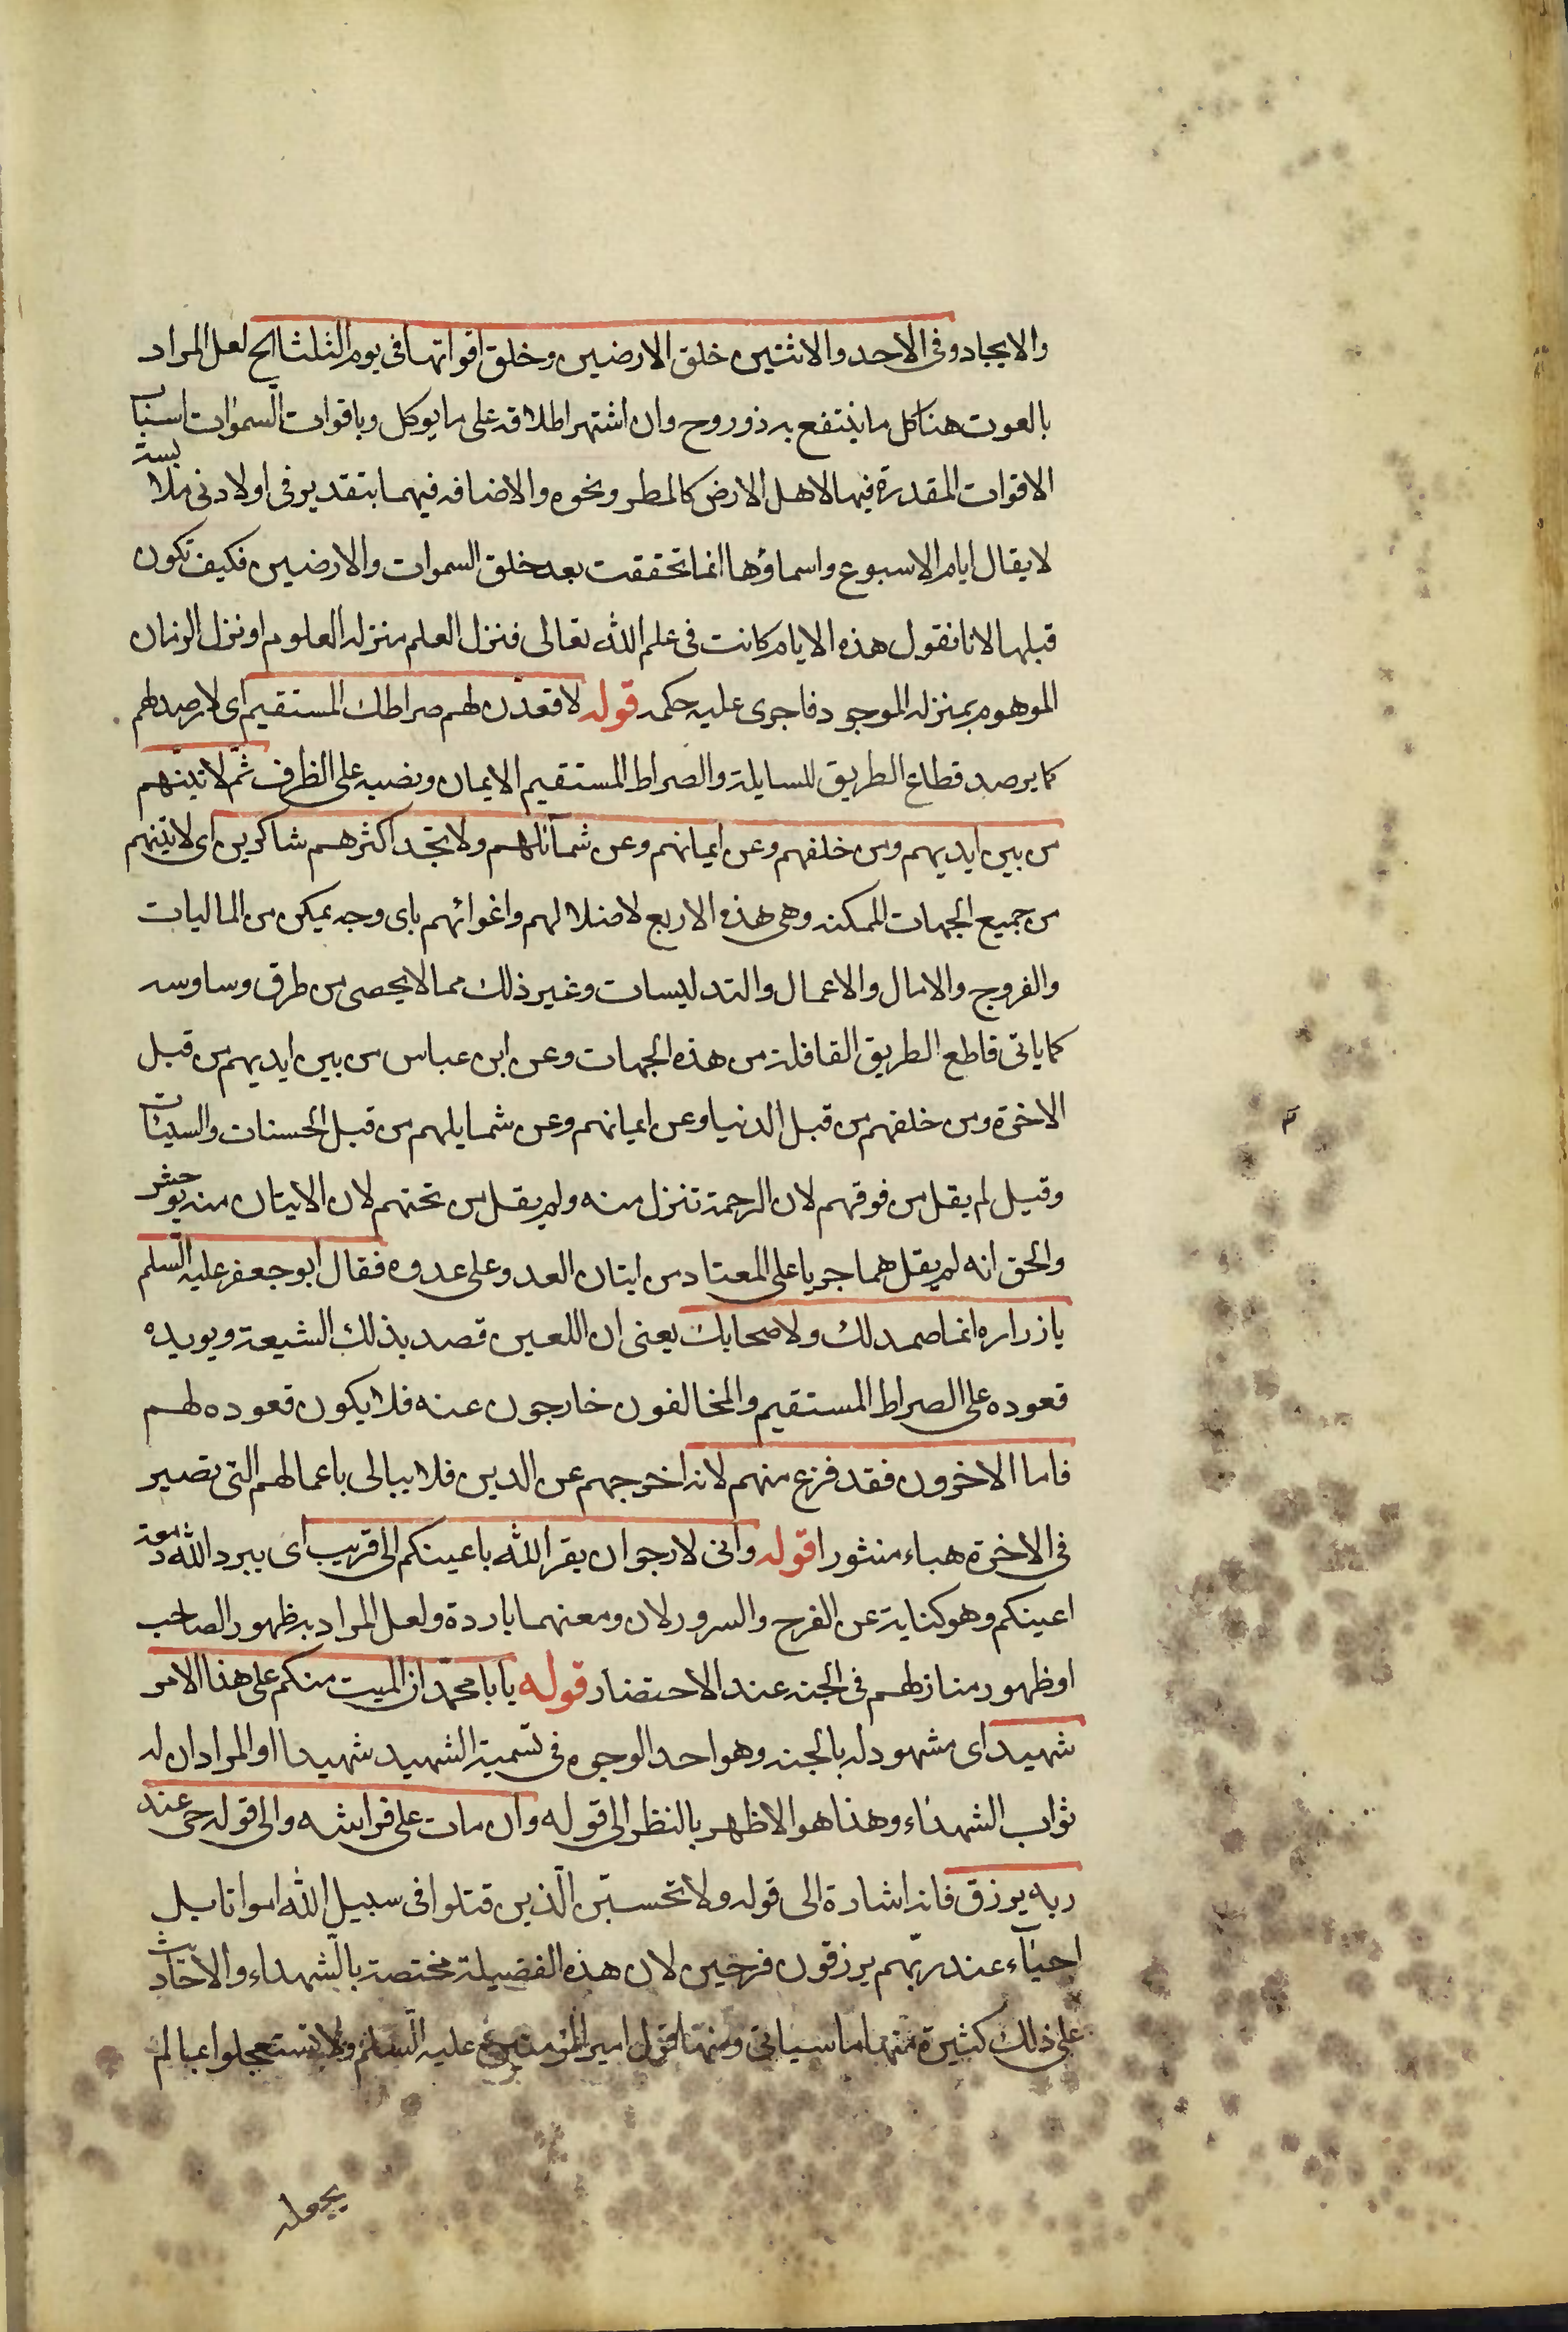 والايجاد وفى الاحد والاثنين خلق الارضين وخلق اقواتها فى يوم الثلثا الخ لعل المراد
بالعوت هنا كل ما ينتفع به ذو روح وان اشتهر اطلاقه على ما يوكل وباقوات السموات اسباب
الاقوات المقدرة فيها لاهل الارض كالمطر ونحوه والاضافه فيهما بتقدير فى او لادنى ملابسة
لا يقال ايام الاسبوع واسماؤها انما تحققت بعد خلق السموات والارضين فكيف تكون
قبلها لانا نقول هذه الايام كانت فى علم الله تعالى فنزل العلم منزله العلوم او نزل الزمان
الموهوم بمنزله الموجود فاجرى عليه حكمه قوله لاقعدن لهم صراطك المستقيم اى لارصد لهم
كما يرصد قطاع الطريق للسايلة والصراط المستقيم الايمان ونصبه على الظرف ثم لاتينهم
من بين ايديهم ومن خلفهم وعن ايمانهم وعن شمآئلهم ولا تجد اكثرهم شاكرين اى لاتينهم
من جميع الجهات الممكنه وهى هذه الاربع لاضلالهم واغوائهم باى وجه يمكن من الماليات
والفروج والامال والاعمال والتدليسات وغير ذلك مما لا يحصى من طرق وساوسه
كما ياتى قاطع الطريق القافلة من هذه الجهات وعن ابن عباس من بين ايديهم من قبل
الاخرة ومن خلفهم من قبل الدنيا وعن ايمانهم وعن شمايلهم من قبل الحسنات والسيئات
وقيل لم يقل من فوقهم لان الرحمة تنزل منه ولم يقل من تحتهم لان الاتيان منه يوحش
والحق انه لم يقل هما جريا على المعتاد من اتيان العدو على عدوه فقال ابو جعفر عليه السلم
يا زراره انما صمد لك ولاصحابك يعنى ان اللعين قصد بذلك الشيعة ويويده
قعوده على الصراط المستقيم والمخالفون خارجون عنه فلا يكون قعوده لهم
فاما الاخرون فقد فرغ منهم لانه اخرجهم عن الدين فلا يبالى باعمالهم التى تصير
فى الاخرة هباء منثورا قوله وانى لارجو ان يقر الله باعينكم الى قريب اى يبرد الله دمعة
اعينكم وهو كناية عن الفرح والسرور لان دمعتهما باردة ولعل المراد به ظهور الصاحب
او ظهور منازلهم فى الجنه عند الاحتضار قوله يا با محمد ان الميت منكم على هذا الامر
شهيد اى مشهود له بالجنه وهو احد الوجوه فى تسمية الشهيد شهيدا او المراد ان له
ثواب الشهداء وهذا هو الاظهر بالنظر الى قوله وان مات على فراشه والى قوله حى عند
ربه يرزق فانه اشارة الى قوله ولا تحسبن الذين قتلوا فى سبيل الله امواتا بل
احيآء عند ربهم يرزقون فرحين لان هذه الفضيلة مختصة بالشهداء والاحاديث
على ذلك كثيرة منها ما سياتى ومنها قول امير المؤمنين عليه السلم ولا تستعجلوا بما لم
يعجله